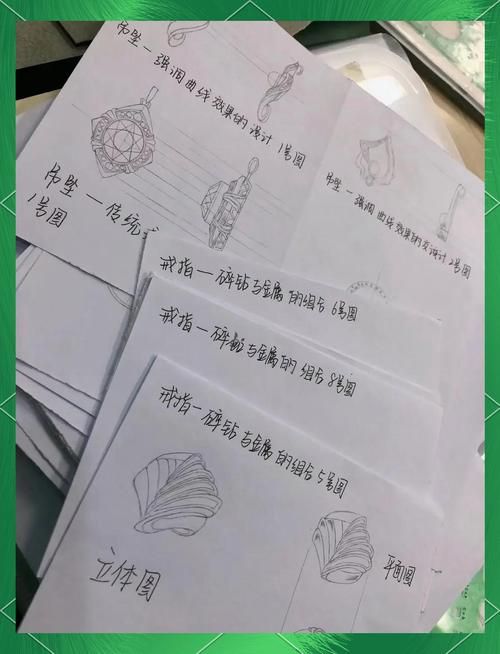 吊坠一强调曲线效果的设计 1号图
吊坠一传统
1号图
吊坠一强调曲线效果的设计2号图
戒指一碎钻与金属的组合 6号图
戒指一碎钻与金属的组合 8号图
戒指一碎钻与金属的组合5号图
立体图
平面图